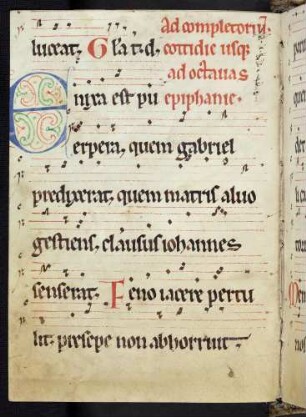 luceat. Gl'a t. d. Ad completoriū
cottidie usq;
ad octavas
Enixa est pu epiphanie.
erpera, quem gabriel
predixerat, quem matris alvo
gestiens, clausus iohannes
senserat. Feno iacere pertu
lit. presepe non abhorruit.